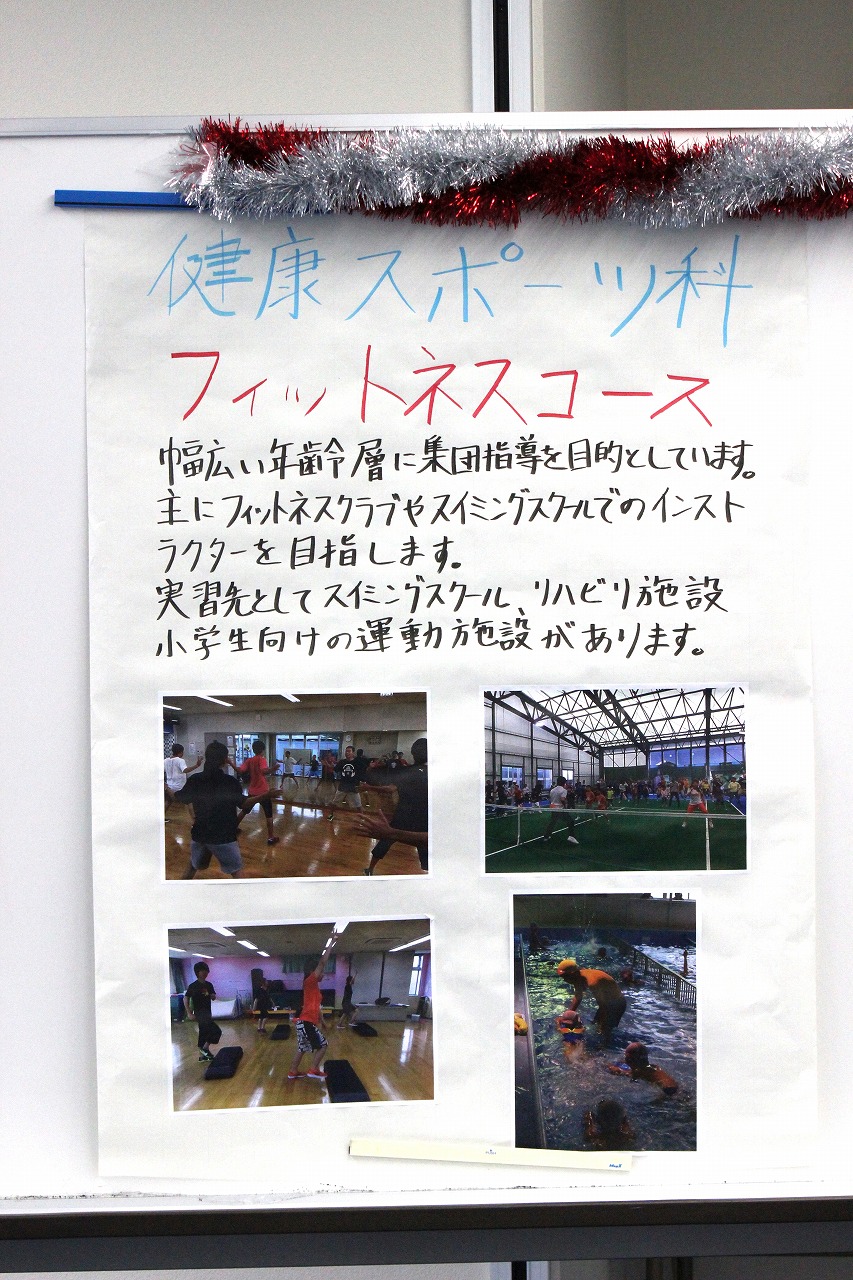 健康スポーツ科
フィットネスコース
幅広い年齢層に集団指導を目的としています。
主にフィットネスクラブやスイミングスクールでのインスト
ラクターを目指します。
実習先としてスイミングスクール、リハビリ施設
小学生向けの運動施設があります。